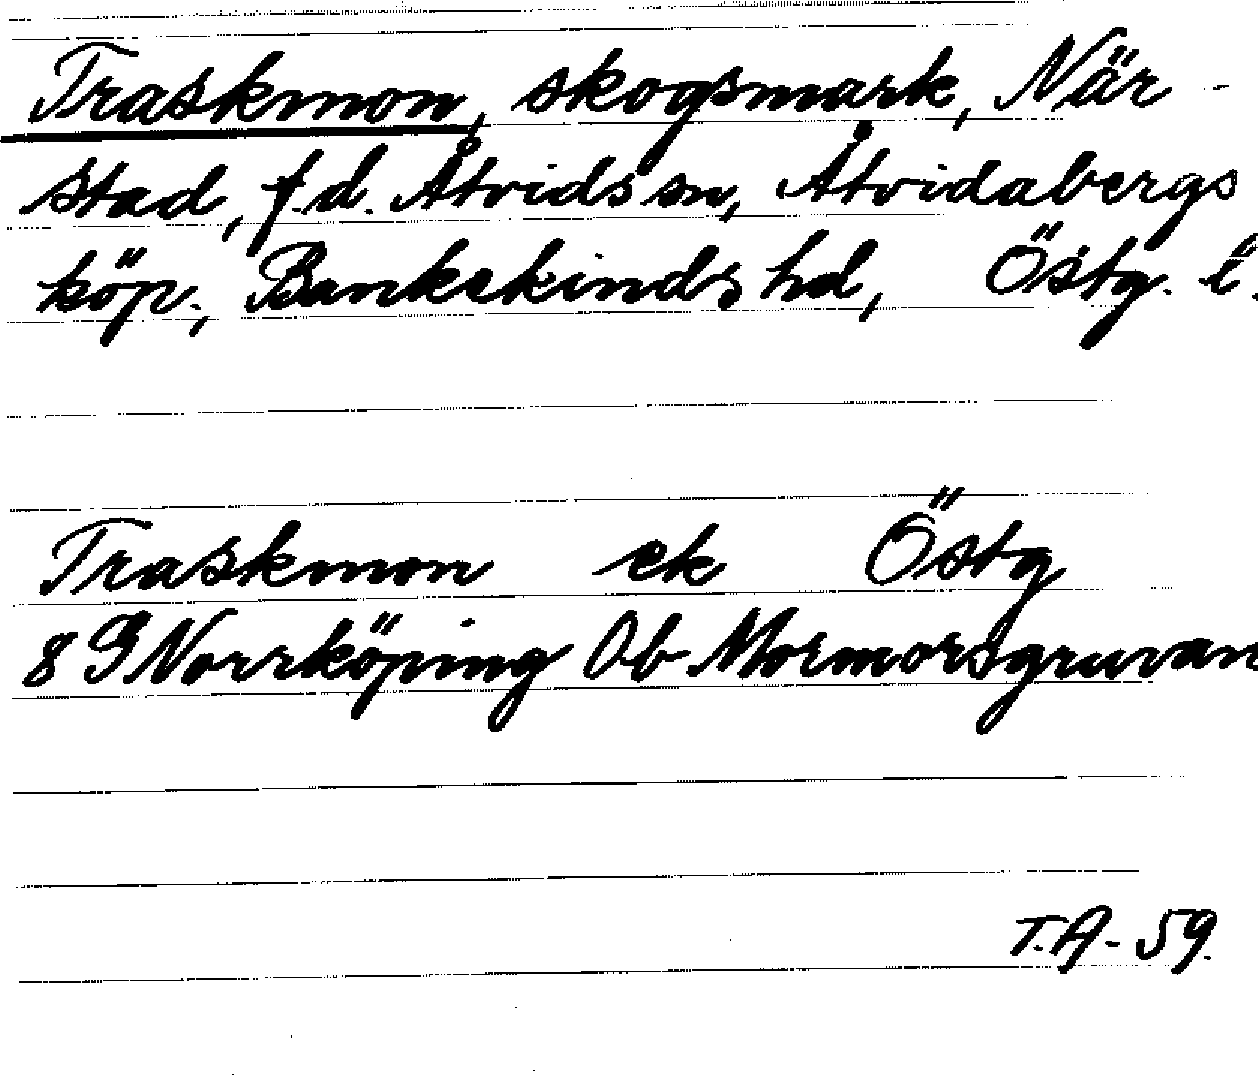 Traskmon, skogsmark, När-
stad, f.d. Åtvids sn, Åtvidabergs
köp., Bankekinds hd, Östg. l.
Traskmon ek Östg
8 G Norrköping 0b Mormorsgruvan
T.A-59.